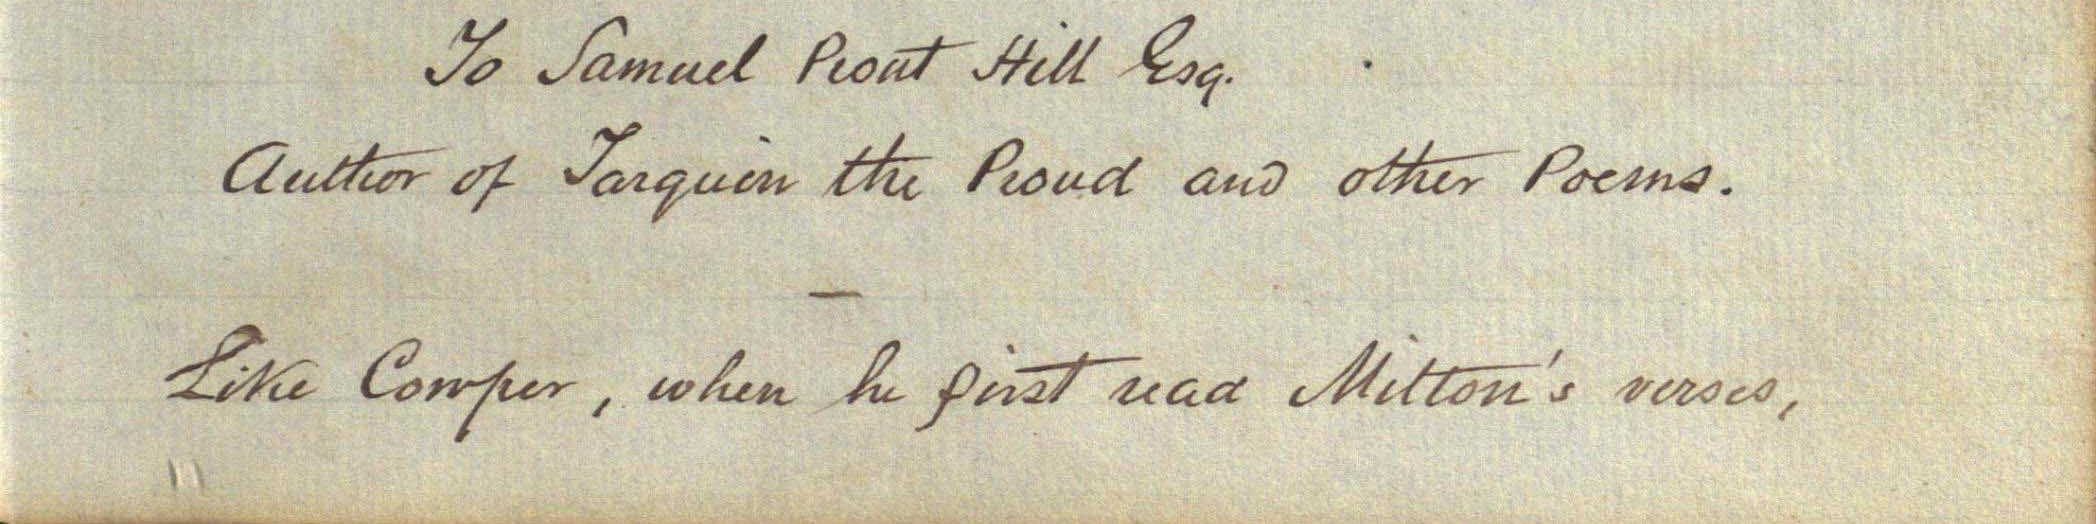 To Samuel Prout Hill Esq.
Author of Tarquin the Proud and other Poems.
Like Cowper, when he first read Milton's verses,